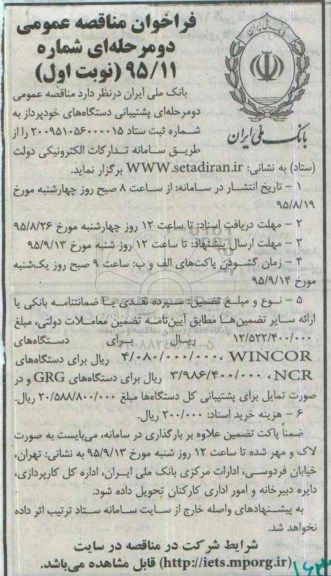 فراخوان مناقصه عمومی
دومرحله‌ای شماره
۹۵/۱۱ (نوبت اول)
بانک ملی ایران
بانک ملی ایران درنظر دارد مناقصه عمومی
دومرحله‌ای پشتیبانی دستگاه‌های خودپرداز به
شماره ثبت ستاد ۲۰۰۹۵۱۰۵۶۰۰۰۰۱۵ را از
طریق سامانه تدارکات الکترونیکی دولت
(ستاد) به نشانی: WWW.setadiran.ir برگزار نماید.
۱ – تاریخ انتشار در سامانه: از ساعت ۸ صبح روز چهارشنبه مورخ
۹۵/۸/۱۹
۲ – مهلت دریافت اسناد: تا ساعت ۱۲ روز چهارشنبه مورخ ۹۵/۸/۲۶
۳ – مهلت ارسال پیشنهاد: تا ساعت ۱۲ روز شنبه مورخ ۹۵/۹/۱۳
۴ – زمان گشودن پاکت‌های الف و ب: ساعت ۹ صبح روز یک‌شنبه
مورخ ۹۵/۹/۱۴
۵ – نوع و مبلغ تضمین: سپرده نقدی یا ضمانتنامه بانکی یا
ارائه سایر تضمین‌ها مطابق آیین‌نامه تضمین معاملات دولتی، مبلغ
۱۲/۵۲۲/۴۰۰/۰۰۰ ریال برای دستگاه‌های
WINCOR ،۴/۰۸۰/۰۰۰/۰۰۰ ریال برای دستگاه‌های
NCR، ۳/۹۸۶/۴۰۰/۰۰۰ ریال برای دستگاه‌های GRG و در
صورت تمایل برای پشتیبانی کل دستگاه‌ها مبلغ ۲۰/۵۸۸/۸۰۰/۰۰۰ ریال.
۶ – هزینه خرید اسناد: ۲۰۰/۰۰۰ ریال.
ضمناً پاکت تضمین علاوه بر بارگذاری در سامانه، می‌بایست به صورت
لاک و مهر شده تا ساعت ۱۲ روز شنبه مورخ ۹۵/۹/۱۳ به نشانی: تهران،
خیابان فردوسی، ادارات مرکزی بانک ملی ایران، اداره کل کارپردازی،
دایره دبیرخانه و امور اداری کارکنان تحویل داده شود.
به پیشنهادهای واصله خارج از سایت سامانه ستاد ترتیب اثر داده
نخواهد شد.
شرایط شرکت در مناقصه در سایت
(http://iets.mporg.ir) قابل مشاهده می‌باشد.